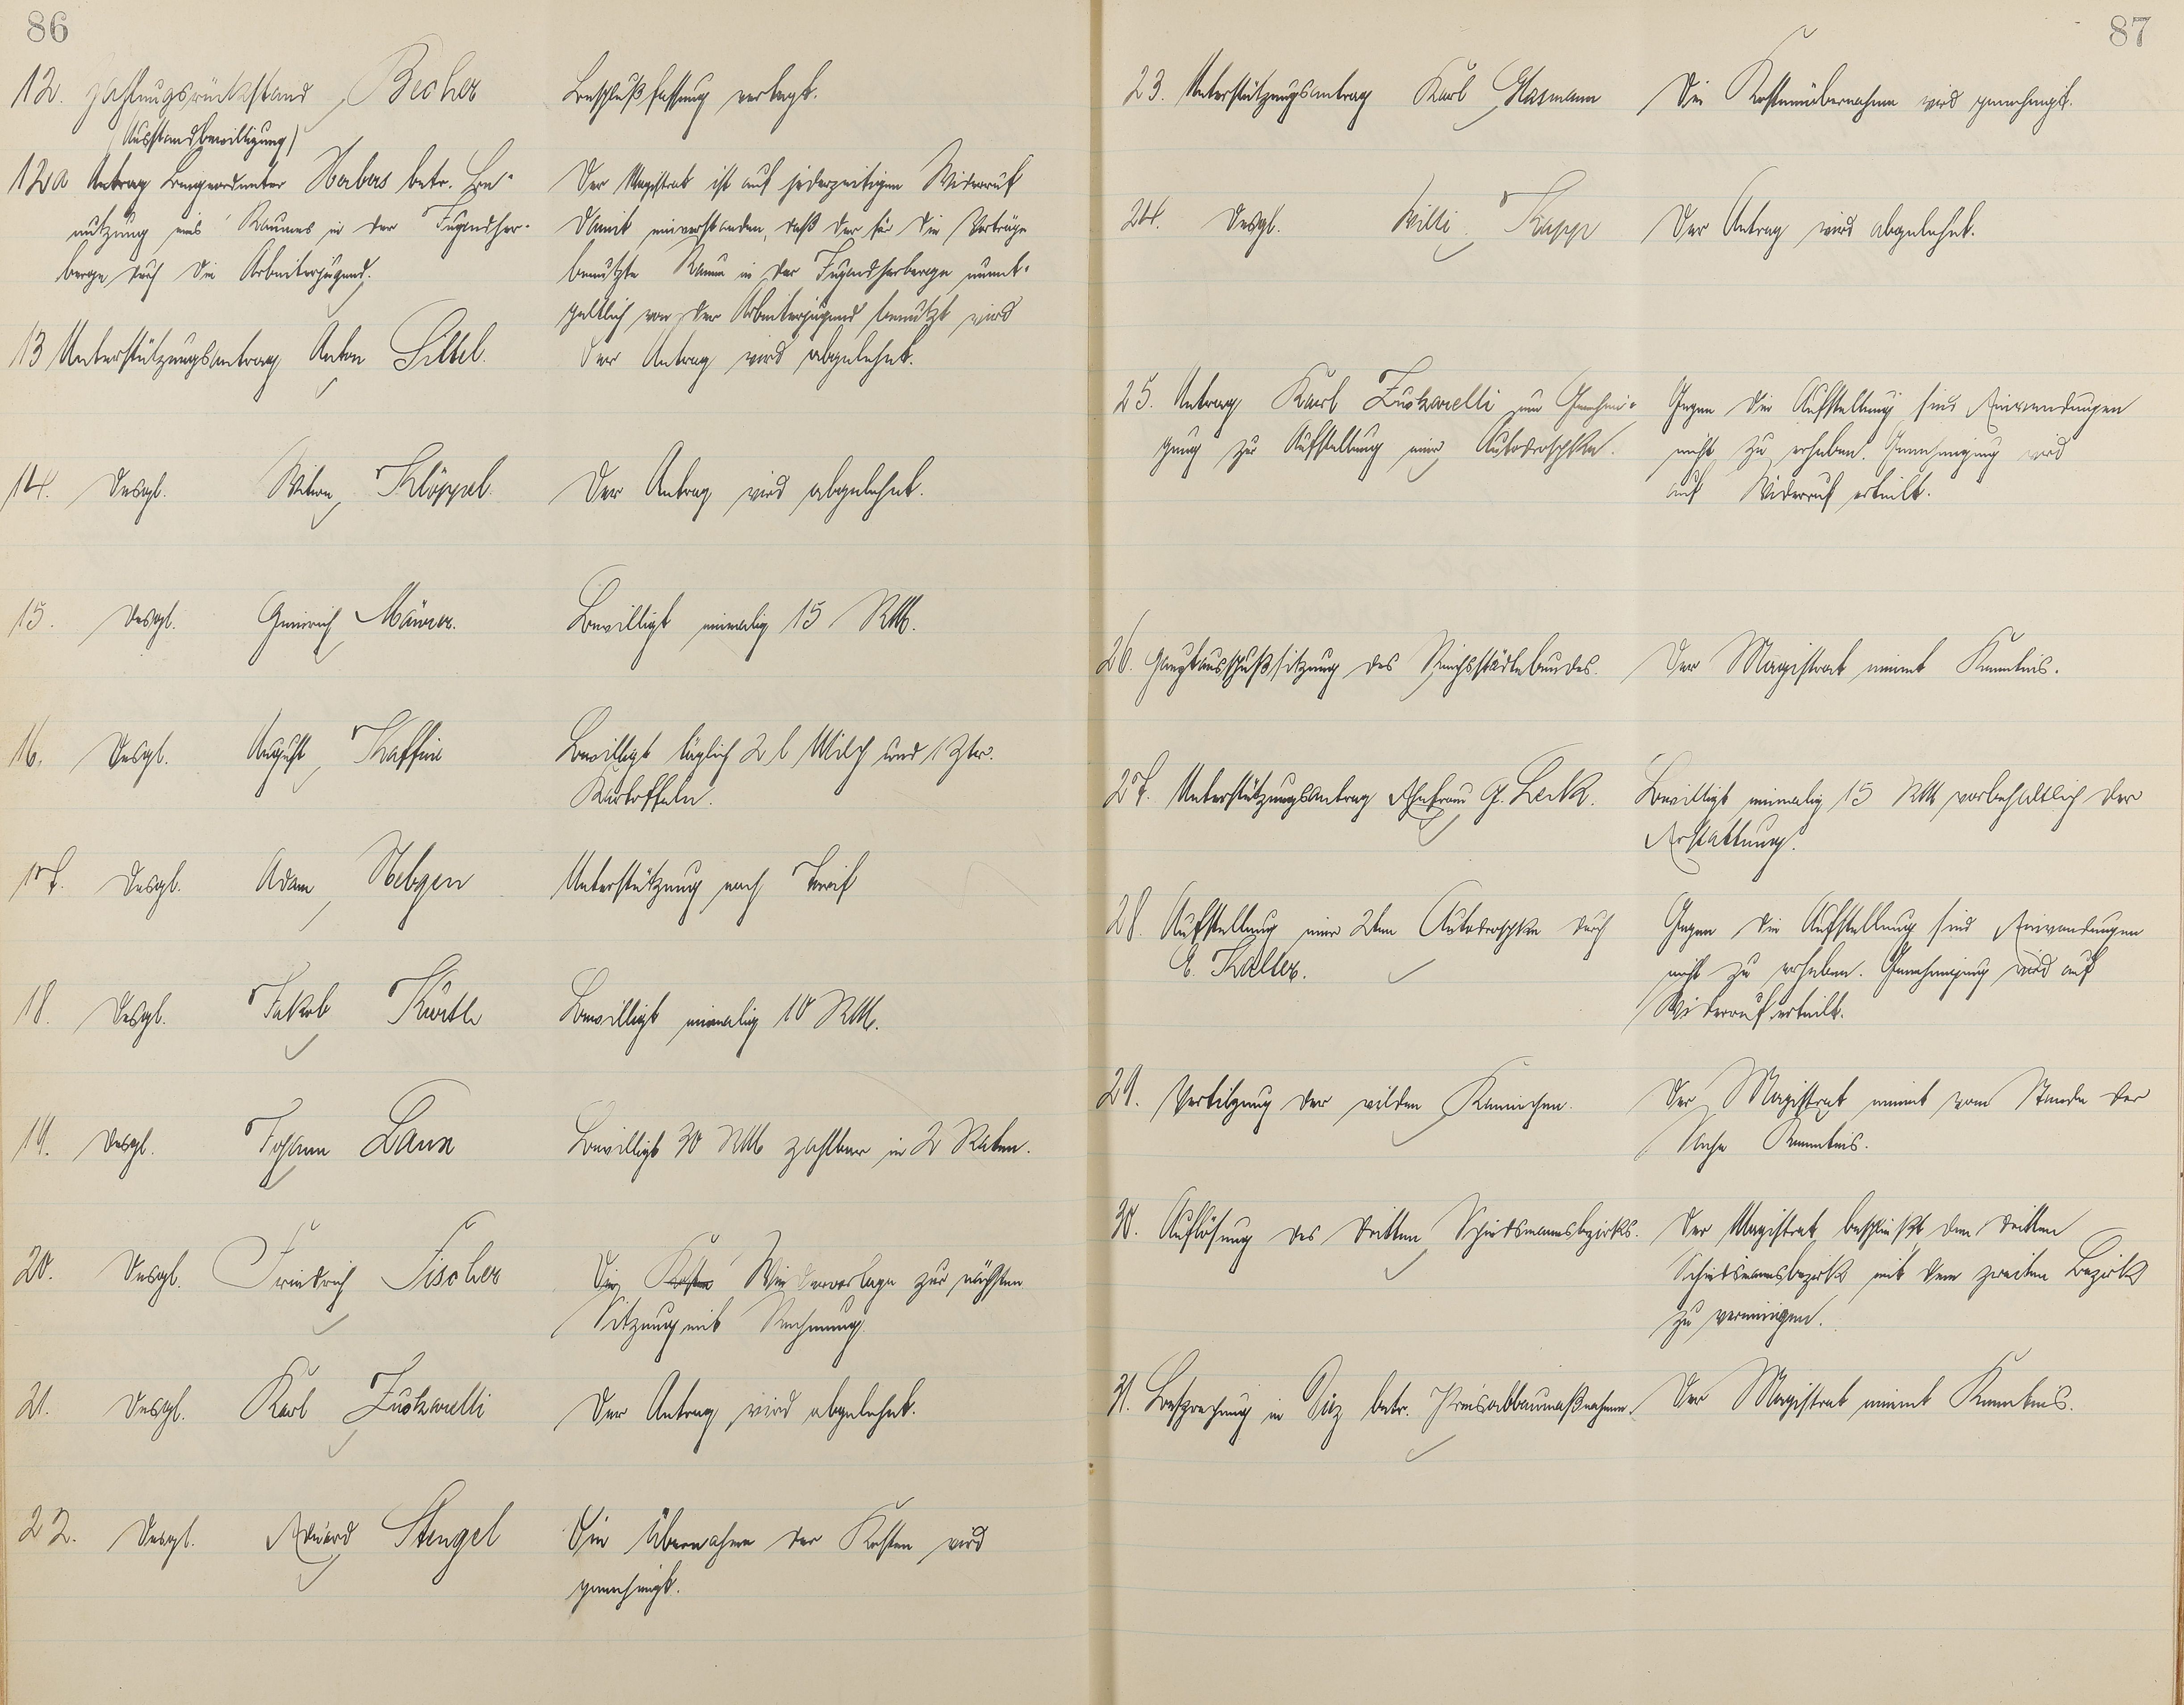 86
12. Zahlungsrückstand Becher
(Ausstandsbewilligung)
Beschlußfassung vertagt.
12a Antrag Beigeordneter Herbers betr. Be-
nutzung eines Raumes in der Jugendher-
berge durch die Arbeiterjugend.
Der Magistrat ist auf jederzeitigen Widerruf
damit einverstanden, daß der für die Vorträge
benutzte Raum in der Jugendherberge unent-
geltlich von der Arbeiterjugend benutzt wird
13 Unterstützungsantrag Anton Littel.
Der Antrag wird abgelehnt.
14. Desgl. Witwe Klöppel.
Der Antrag wird abgelehnt.
15. Desgl. Heinrich Mäurer.
Bewilligt einmalig 15 RM.
16. Desgl. August Kaffine
Bewilligt täglich 2 l Milch und 1 Ztr.
Kartoffeln.
17. Desgl. Adam Nebgen
Unterstützung nach Tarif
18. Desgl. Jakob Kürtle
Bewilligt einmalig 10 RM.
19. Desgl. Johann Laux
Bewilligt 30 RM zahlbar in 2 Raten.
20. Desgl. Friedrich Fischer
Die Kosten Wiedervorlage zur nächsten
Sitzung mit Rechnung
21. Desgl. Karl Zuckarelli
Der Antrag wird abgelehnt.
22. Desgl. Eduard Stengel
Die Übernahme der Kosten wird
genehmigt.
87
23. Unterstützungsantrag Karl Glasmann
Die Kostenübernahme wird genehmigt.
24. Desgl. Willi Kapp
Der Antrag wird abgelehnt.
25. Antrag Karl Zuckarelli um Genehmi-
gung zur Aufstellung einer Autodroschke.
Gegen die Aufstellung sind Einwendungen
nicht zu erheben. Genehmigung wird
auf Widerruf erteilt.
26. Hauptausschußsitzung des Reichsstädtebundes.
Der Magistrat nimmt Kenntnis.
27. Unterstützungsantrag Ehefrau G. Leik.
Bewilligt einmalig 15 RM vorbehaltlich der
Erstattung.
28. Aufstellung einer 2ten Autodroschke durch
E. Kaller.
Gegen die Aufstellung sind Einwendungen
nicht zu erheben. Genehmigung wird auf
Widerruf erteilt.
29. Vertilgung der wilden Kaninchen.
Der Magistrat nimmt vom Stande der
Sache Kenntnis.
30. Auflösung des dritten Schiedsmannsbezirks.
Der Magistrat beschließt den dritten
Schiedsmannsbezirk mit dem zweiten Bezirk
zu vereinigen.
31. Besprechung in Diez betr. Preisabbaumaßnahmen.
Der Magistrat nimmt Kenntnis.